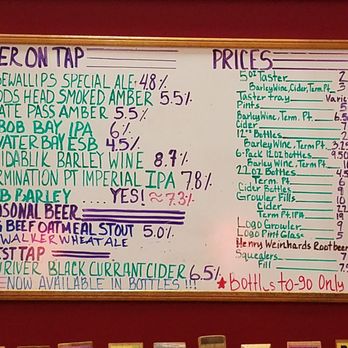 ER ON TAP
EWALLIPS SPECIAL ALE 4.8%
ODS HEAD SMOKED AMBER 5.5%
ATE PASS AMBER 5.5%
BOB BAY IPA 6%
WATER BAY ESB 4.5%
IDABLIK BARLEY WINE 8.7%
RMINATION PT IMPERIAL IPA 7.8%
B BARLEY ....YES! ≈7.3%
SONAL BEER
G BEEF OATMEAL STOUT 5.0%
WALKER WHEAT ALE
EST TAP
RIVER BLACK CURRANT CIDER 6.5%
NOW AVAILABLE IN BOTTLES !!!
PRICES
5 oz Taster 2
Barley Wine, Cider, Term Pt. 3
Taster tray Varie
Pints 5
Barley Wine, Term Pt. 6.5
Cider
12 oz Bottles 2
Barley Wine, Term Pt. 3.75
6-Pack 12 oz bottles 9.50
Barley Wine, Term Pt.
22 oz Bottles
Term Pt. 6
Cider Bottles
Growler Fills
Cider
Term Pt. IPA
Logo Growler
Logo Pint Glass 5
Henry Weinhards Root beer
Squealers 7
Fill
★Bottles to-go Only